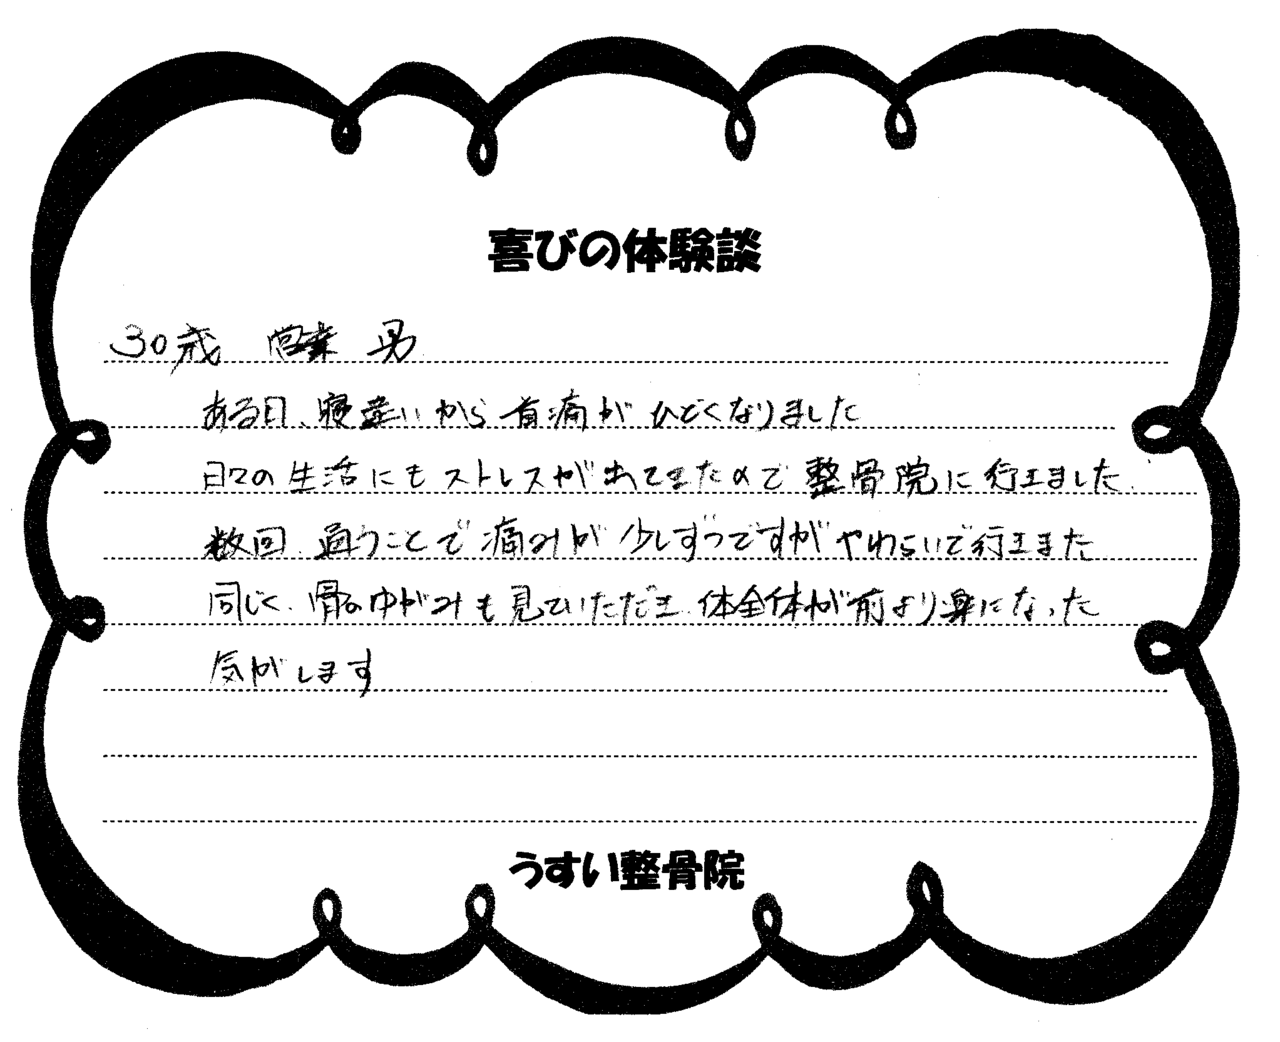 喜びの体験談
30歳 営業 男
ある日、寝違いから首痛がひどくなりました
日々の生活にもストレスが出てきたので整骨院に行きました.
数回、通うことで痛みが少しずつですがやわらいで行きました
同じく、骨のゆがみも見ていただき、体全体が前より楽になった
気がします
うすい整骨院